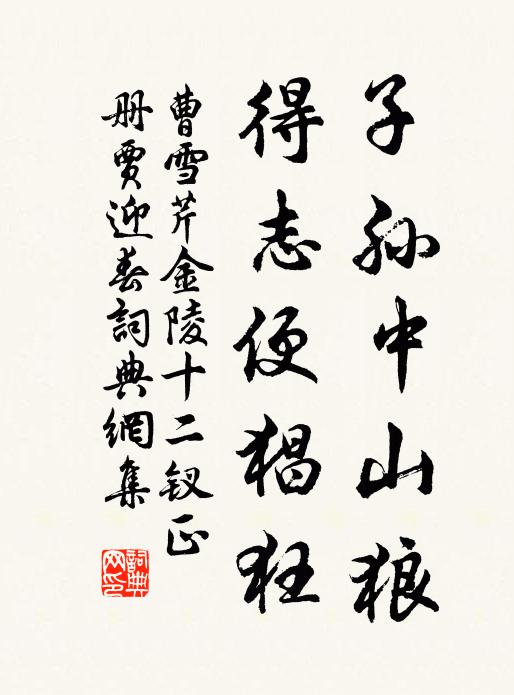 子孙中山狼
得志便猖狂
曹雪芹金陵十二钗正
册賈迎春詞典網集
詞典
网印